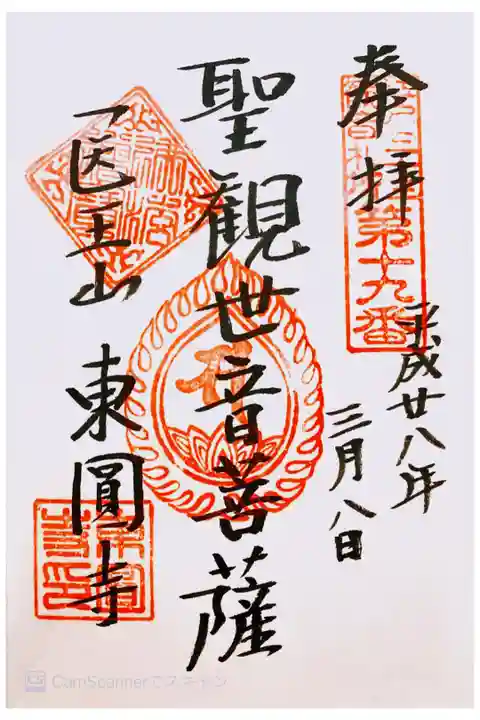 奉拝
第十九番
平成廿八年
三月八日
聖観世音菩薩
医王山
東圓寺
CamScannerでスキャン